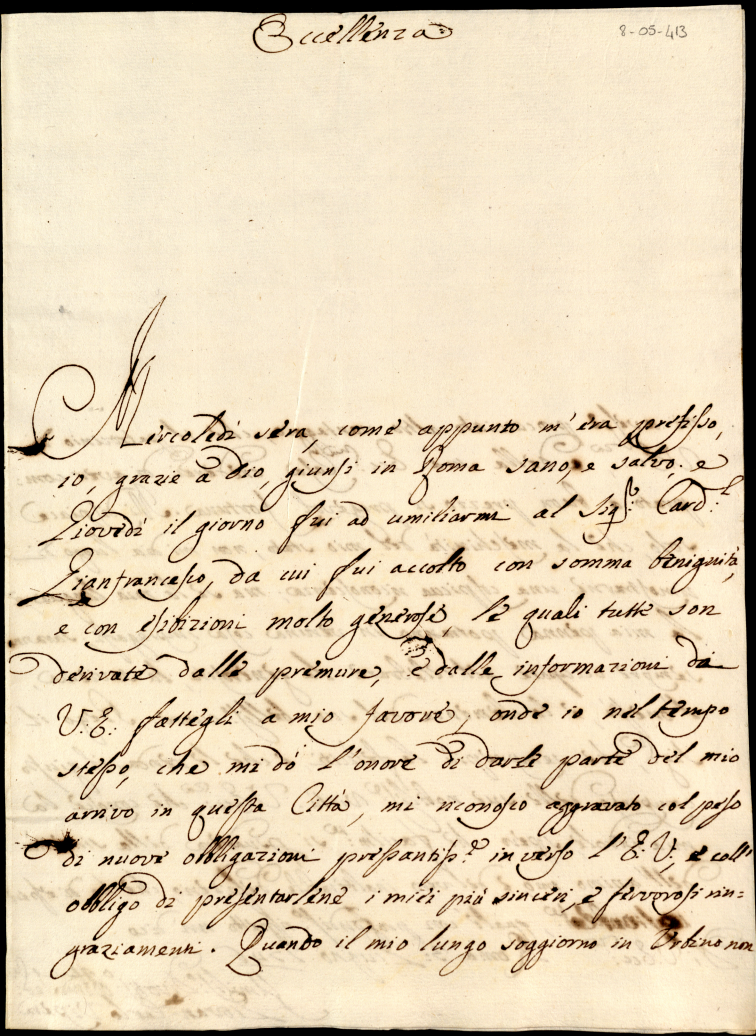 Eccellenza
8-05-413
Mercoledì sera, come appunto m'era prefisso,
io, grazie a Dio, giunsi in Roma sano, e salvo; e
Giovedì il giorno fui ad umiliarmi al Sigr. Card.l
Gianfrancesco, da cui fui accolto con somma benignità,
e con esibizioni molto generose, le quali tutte son
derivate dalle premure, e dalle informazioni da
V: E: fattegli a mio favore; onde io nel tempo
stesso, che mi dò l'onore di darle parte del mio
arrivo in questa Città, mi riconosco aggravato col peso
di nuove obbligazioni pressantiss.e inverso l'E: V:, e coll'
obbligo di presentarlene i miei più sinceri, e fervorosi rin=
graziamenti. Quando il mio lungo soggiorno in Urbino non